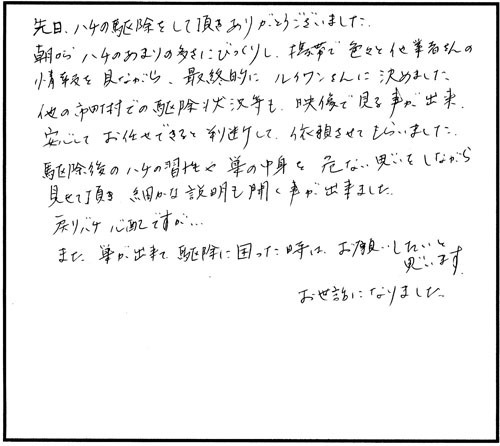 先日、ハチの駆除をして頂きありがとうございました。
朝からハチのあまりの多さにびっくりし、携帯で色々と他業者さんの
情報を見ながら、最終的にルイワンさんに決めました
他の市町村での駆除状況等も、映像で見る事が出来、
安心してお任せできると判断して、依頼させてもらいました。
駆除後のハチの習性や巣の中身を危ない思いをしながら
見せて頂き細かな説明も聞く事が出来ました。
戻りバチ心配ですが…
また巣が出来て駆除に困った時は、お願いしたいと
思います。
お世話になりました。